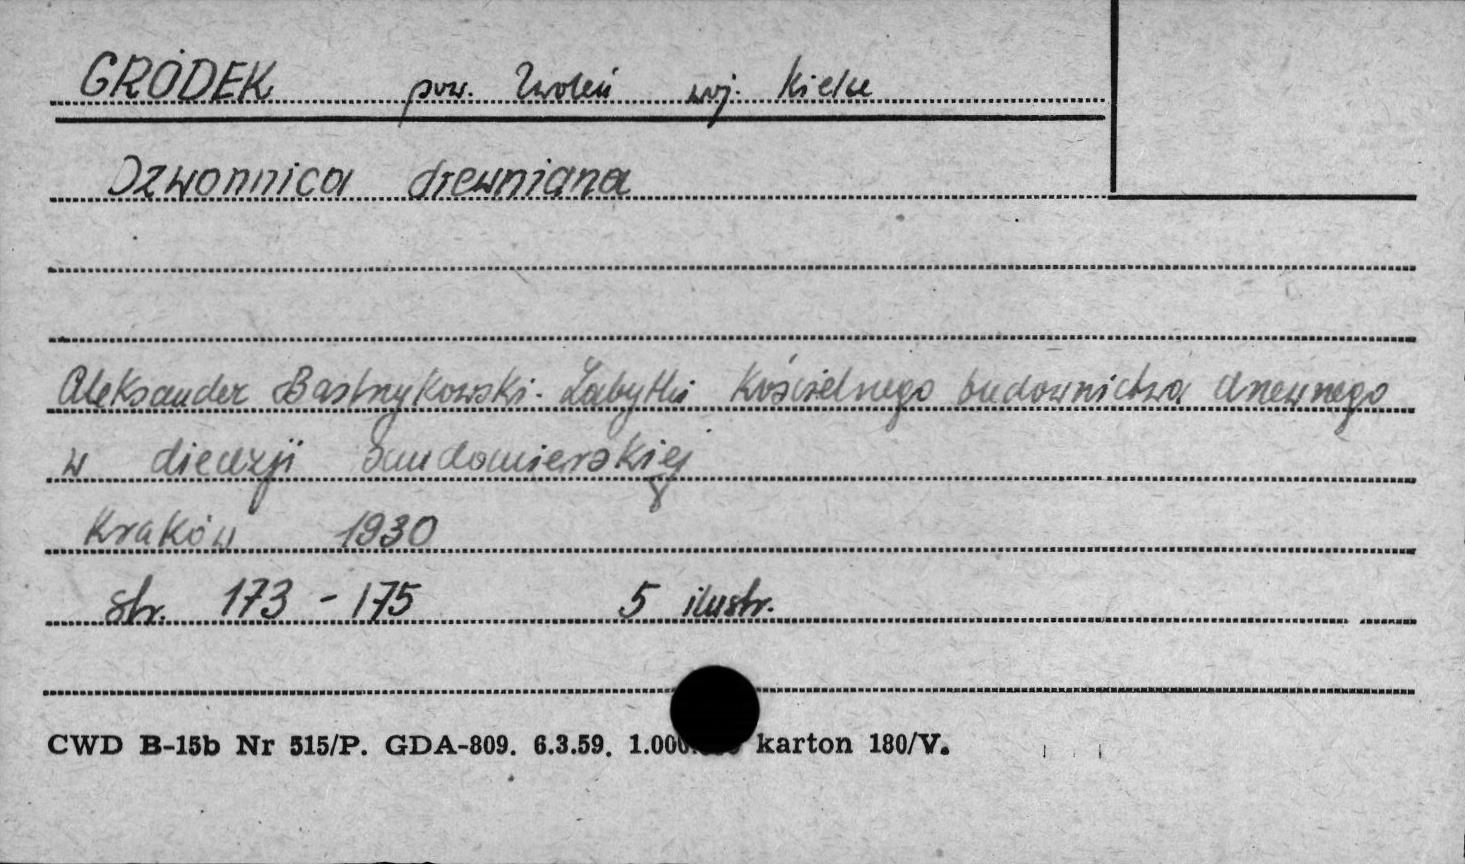 GRÓDEK pow. Zwoleń woj. Kielce
Dzwonnica drewniana
Aleksander Bastrzykowski - Zabytki Kościelnego budownictwa drzewnego
w diecezji Sandomierskiej
Kraków 1930
str. 173 - 175 5 ilustr.
CWD B-15b Nr 515/P. GDA-809. 6.3.59. karton 180/V.